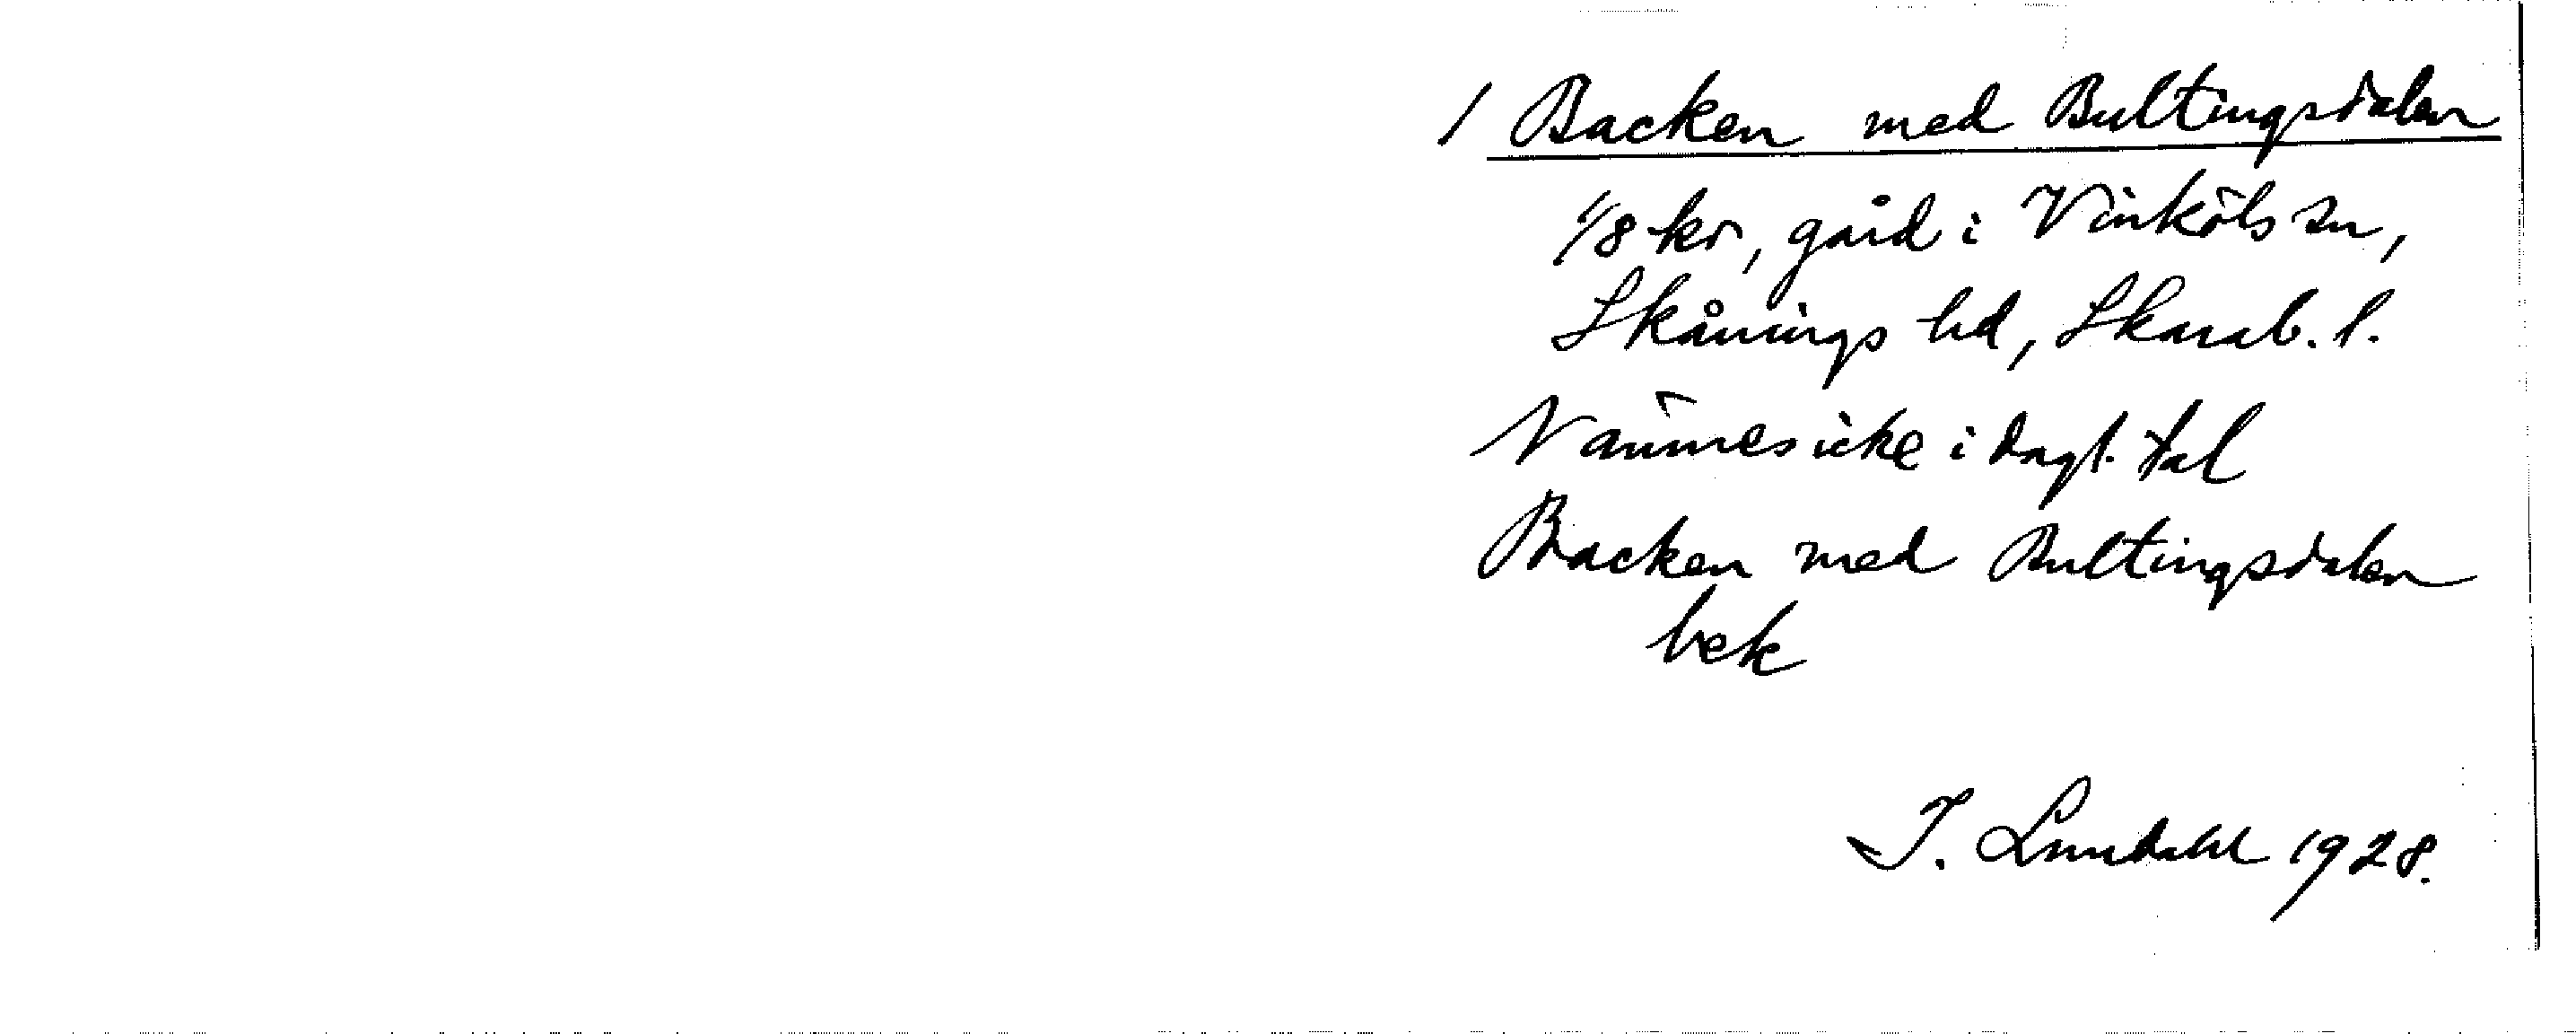 1 Backen med Bultingsdalen
1/8 kr, gård i Vinköls sn,
Skånings hd, Skarab. l.
Nämnes icke i dagl. tal
Backen med Bultingsdalen
bek
I. Lundahl 1928.